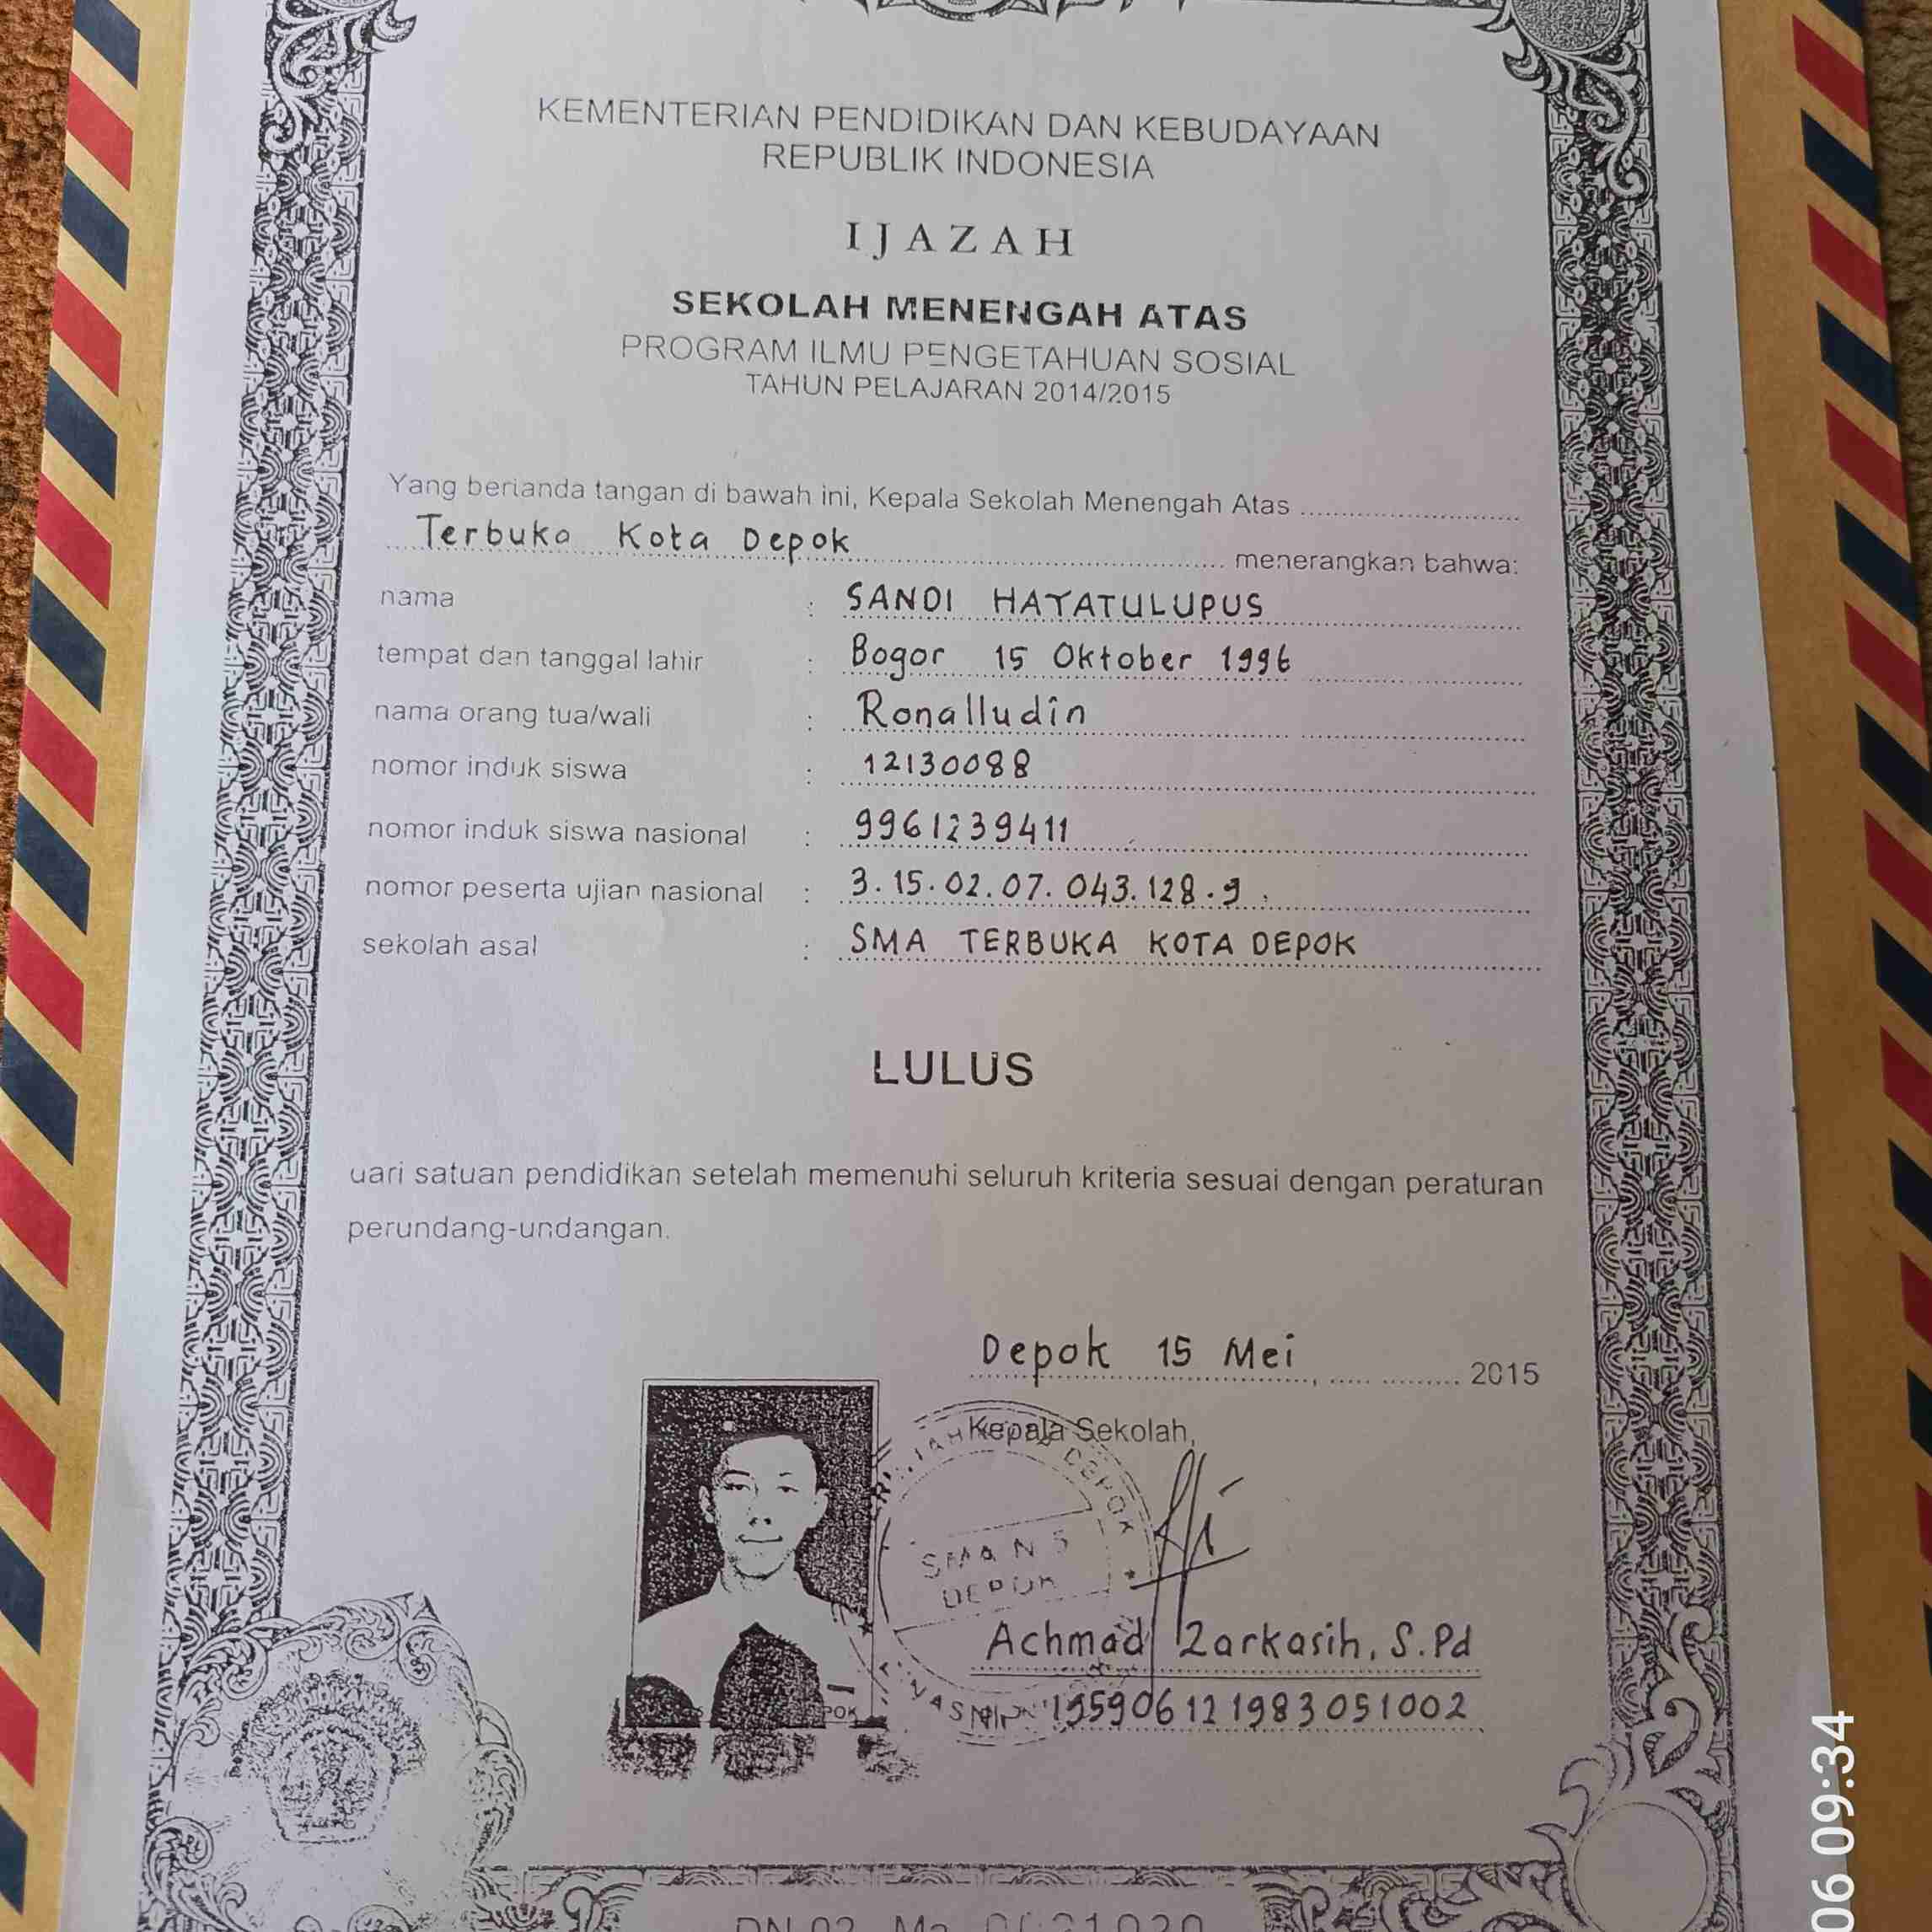 KEMENTERIAN PENDIDIKAN DAN KEBUDAYAAN
REPUBLIK INDONESIA
IJAZAH
SEKOLAH MENENGAH ATAS
PROGRAM ILMU PENGETAHUAN SOSIAL
TAHUN PELAJARAN 2014/2015
Yang bertanda tangan di bawah ini, Kepala Sekolah Menengah Atas
Terbuka Kota Depok menerangkan bahwa:
nama : SANDI HAYATULUPUS
tempat dan tanggal lahir : Bogor 15 Oktober 1996
nama orang tua/wali : Ronalludin
nomor induk siswa : 12130088
nomor induk siswa nasional : 9961239411
nomor peserta ujian nasional : 3.15.02.07.043.128.9
sekolah asal : SMA TERBUKA KOTA DEPOK
LULUS
dari satuan pendidikan setelah memenuhi seluruh kriteria sesuai dengan peraturan
perundang-undangan.
Depok 15 Mei, 2015
Kepala Sekolah,
DEPOK
SMA N 5
DEPOK
Achmad Zarkasih, S.Pd
NIP 195906121983051002
06 09:34